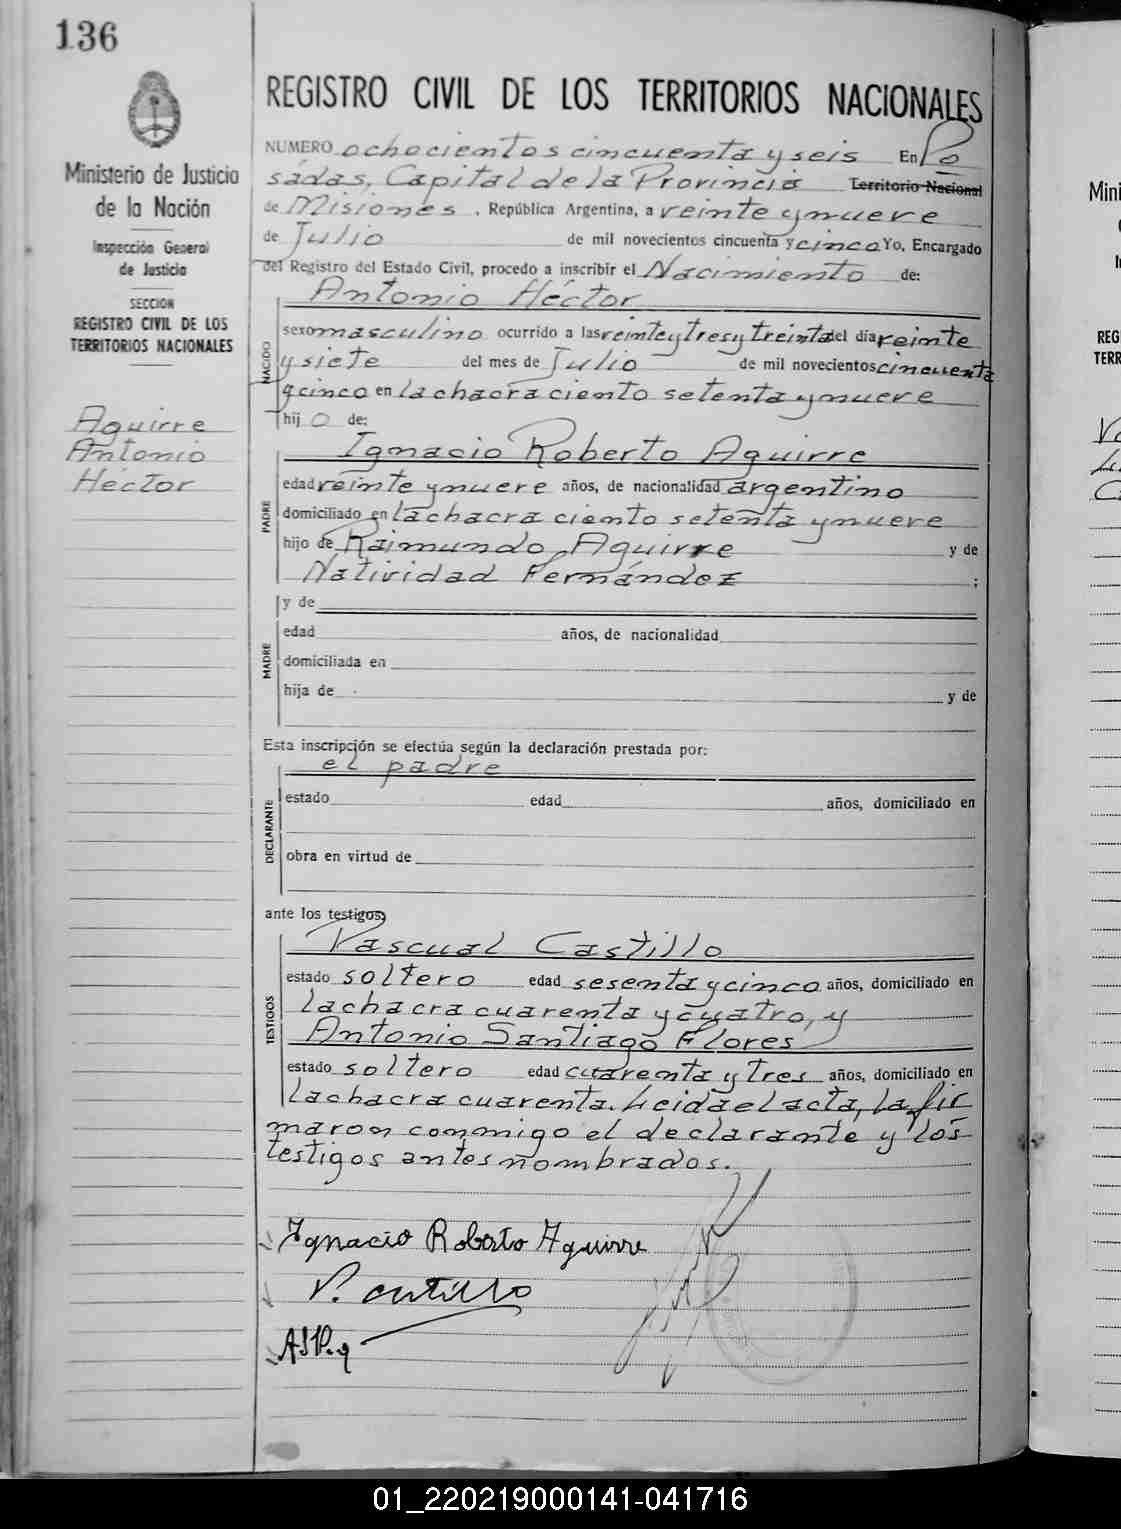 136
Ministerio de Justicia
de la Nación
Inspección General
de Justicia
SECCION
REGISTRO CIVIL DE LOS
TERRITORIOS NACIONALES
Aguirre
Antonio
Héctor
REGISTRO CIVIL DE LOS TERRITORIOS NACIONALES
NUMERO ochocientos cincuenta y seis En Po
sadas, Capital de la Provincia Territorio Nacional
de Misiones, República Argentina, a veinte y nueve
de Julio de mil novecientos cincuenta y cinco Yo, Encargado
del Registro del Estado Civil, procedo a inscribir el Nacimiento de:
Antonio Héctor
NACIDO
sexo masculino ocurrido a las veinte y tres y treinta del día veinte
y siete del mes de Julio de mil novecientos cincuenta
y cinco en la chacra ciento setenta y nueve
hij o de:
Ignacio Roberto Aguirre
PADRE
edad veinte y nueve años, de nacionalidad argentino
domiciliado en la chacra ciento setenta y nueve
hijo de Raimundo Aguirre y de
Natividad Fernández ;
y de
MADRE
edad años, de nacionalidad
domiciliada en
hija de y de
Esta inscripción se efectúa según la declaración prestada por:
el padre
DECLARANTE
estado edad años, domiciliado en
obra en virtud de
ante los testigos,
Pascual Castillo
TESTIGOS
estado soltero edad sesenta y cinco años, domiciliado en
la chacra cuarenta y cuatro, y
Antonio Santiago Flores
estado soltero edad cuarenta y tres años, domiciliado en
la chacra cuarenta. Leida el acta, la fir
maron conmigo el declarante y los
testigos antes nombrados.
Ignacio Roberto Aguirre
P. Castillo
Mini
REG
TERR
01_220219000141-041716